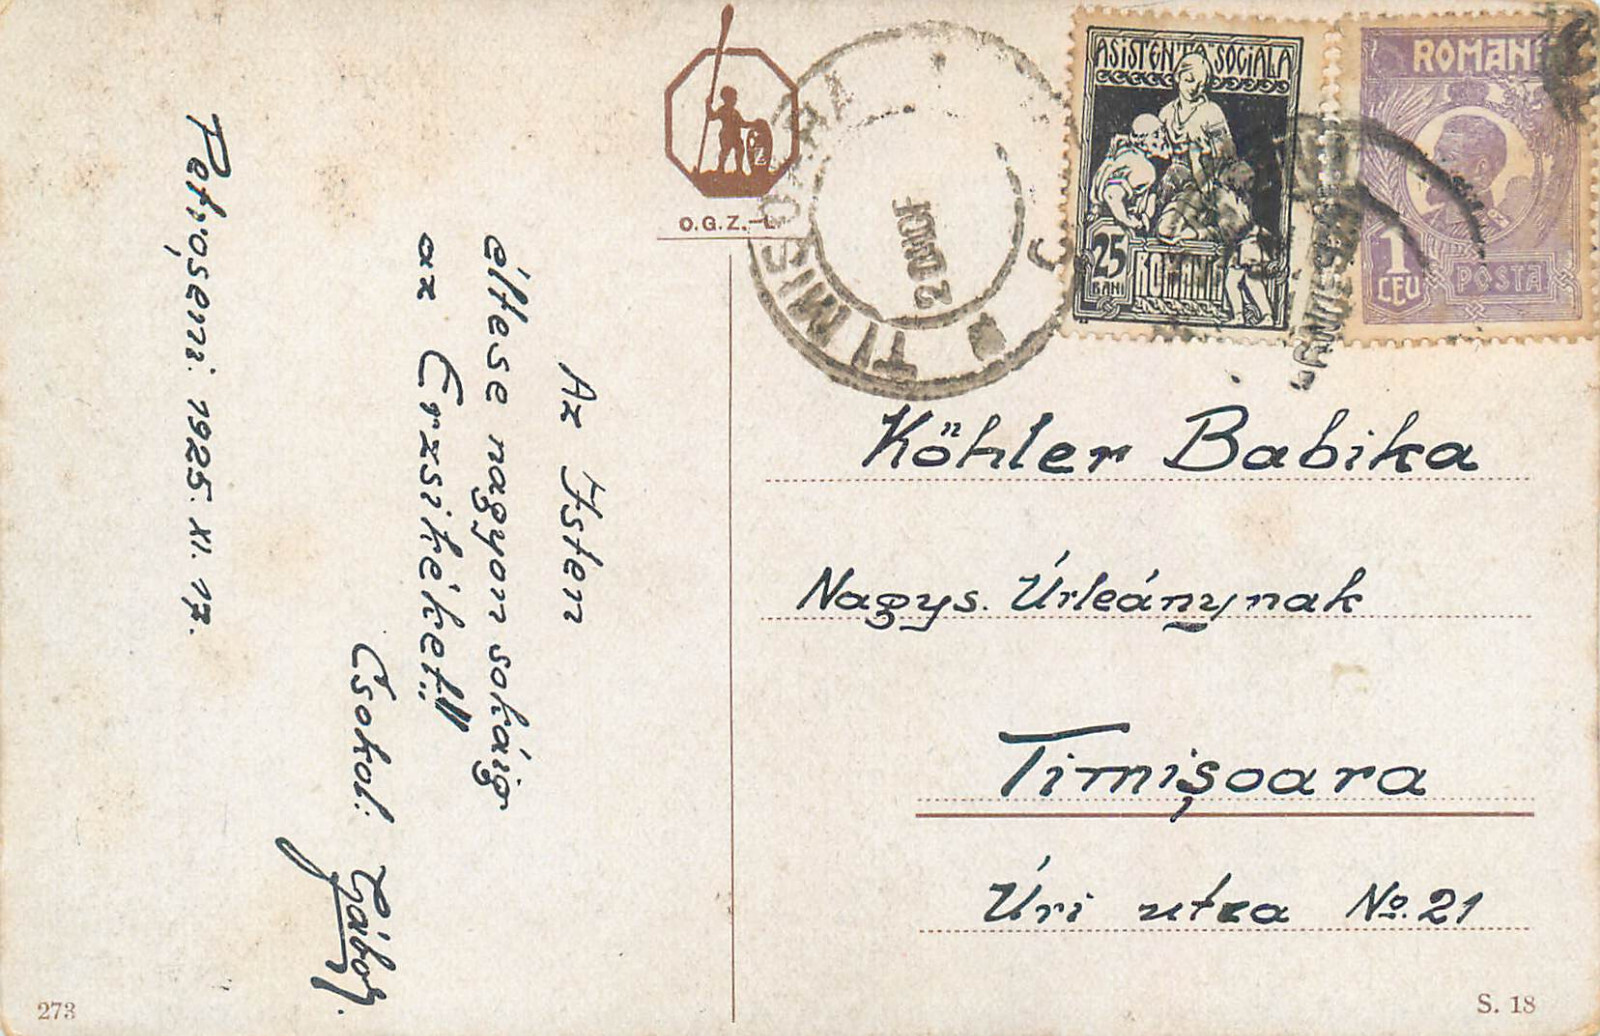 Petroșeni. 1925. XI. 17.
Az Isten
éltese nagyon sokáig
az Erzsikéket!!
Csokol: Gábor.
273
O.G.Z.-L
TIMISOARA
20NOI
ASISTENTA SOCIALA
25
BANI
ROMANIA
ROMANI
1
LEU
POSTA
Köhler Babika
Nagys. Úrleánynak
Timișoara
Úri utca No. 21
S. 18